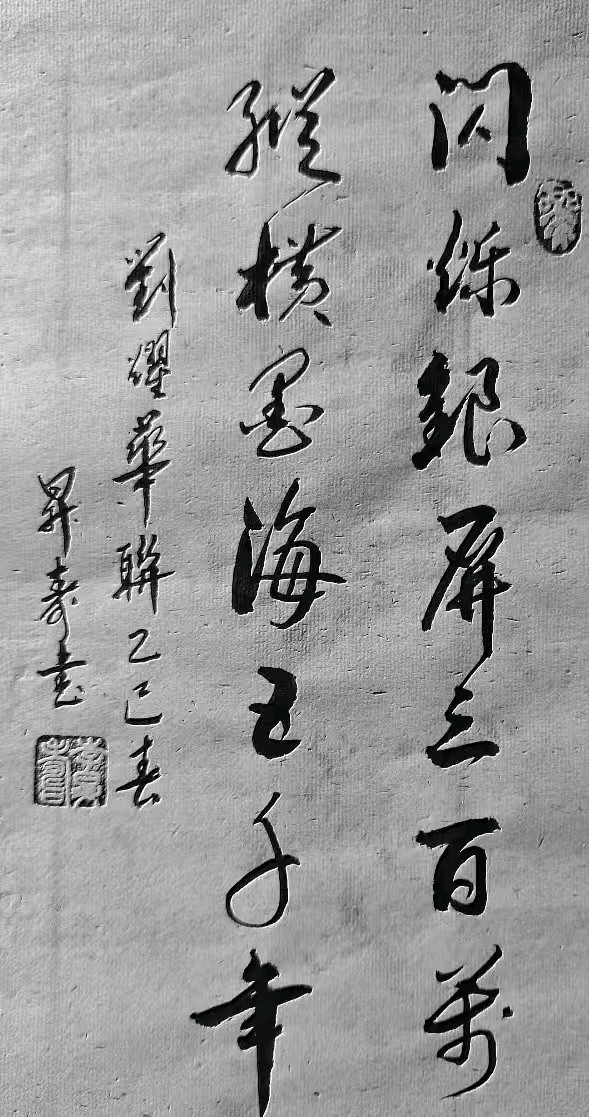 閃爍銀屏三百萬
縱橫墨海五千年
劉燿華聯乙巳春
昇壽書